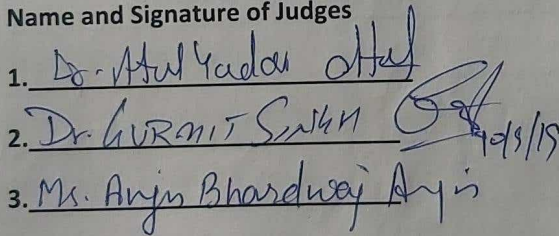 Name and Signature of Judges
1. Dr. Atul Yadav Atul
2. Dr. GURMIT SINGH
3. Ms. Anju Bhardwaj Anju